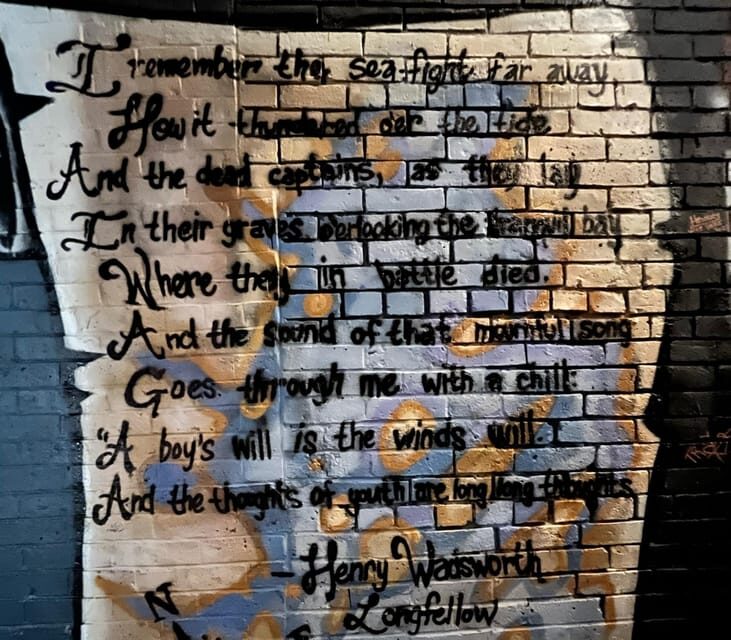 I remember the sea-fight far away,
How it thundered o'er the tide
And the dead captains, as they lay
In their graves, o'erlooking the tranquil bay
Where they in battle died.
And the sound of that mournful song
Goes through me with a chill:
"A boy's will is the winds will.
And the thoughts of youth are long, long thoughts
- Henry Wadsworth
Longfellow
N